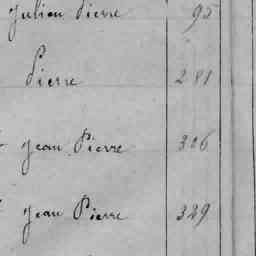 Julien Pierre 95
Pierre 281
Jean Pierre 306
Jean Pierre 329